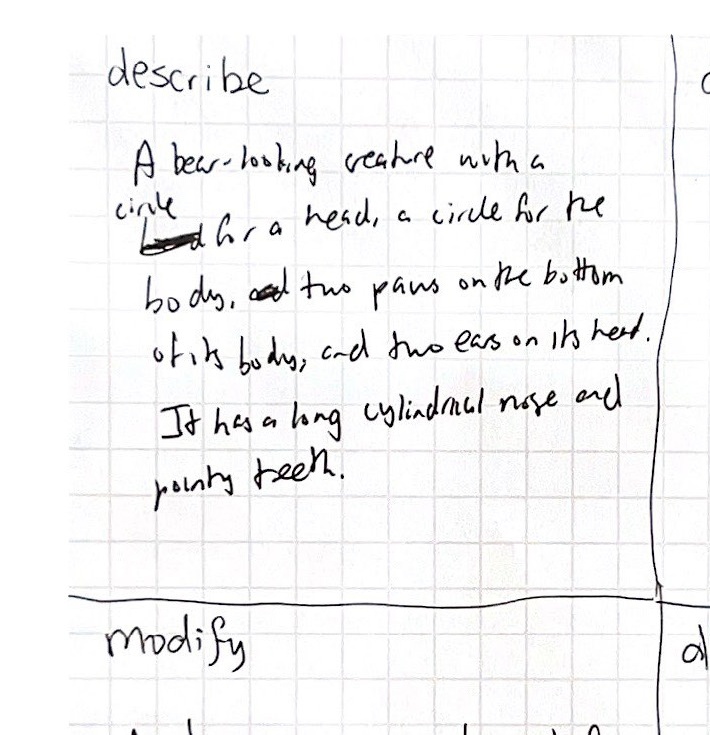 describe
A bear-looking creature with a
circle
for a head, a circle for the
body, two paws on the bottom
of its body, and two ears on its head.
It has a long cylindrical nose and
pointy teeth.
modify